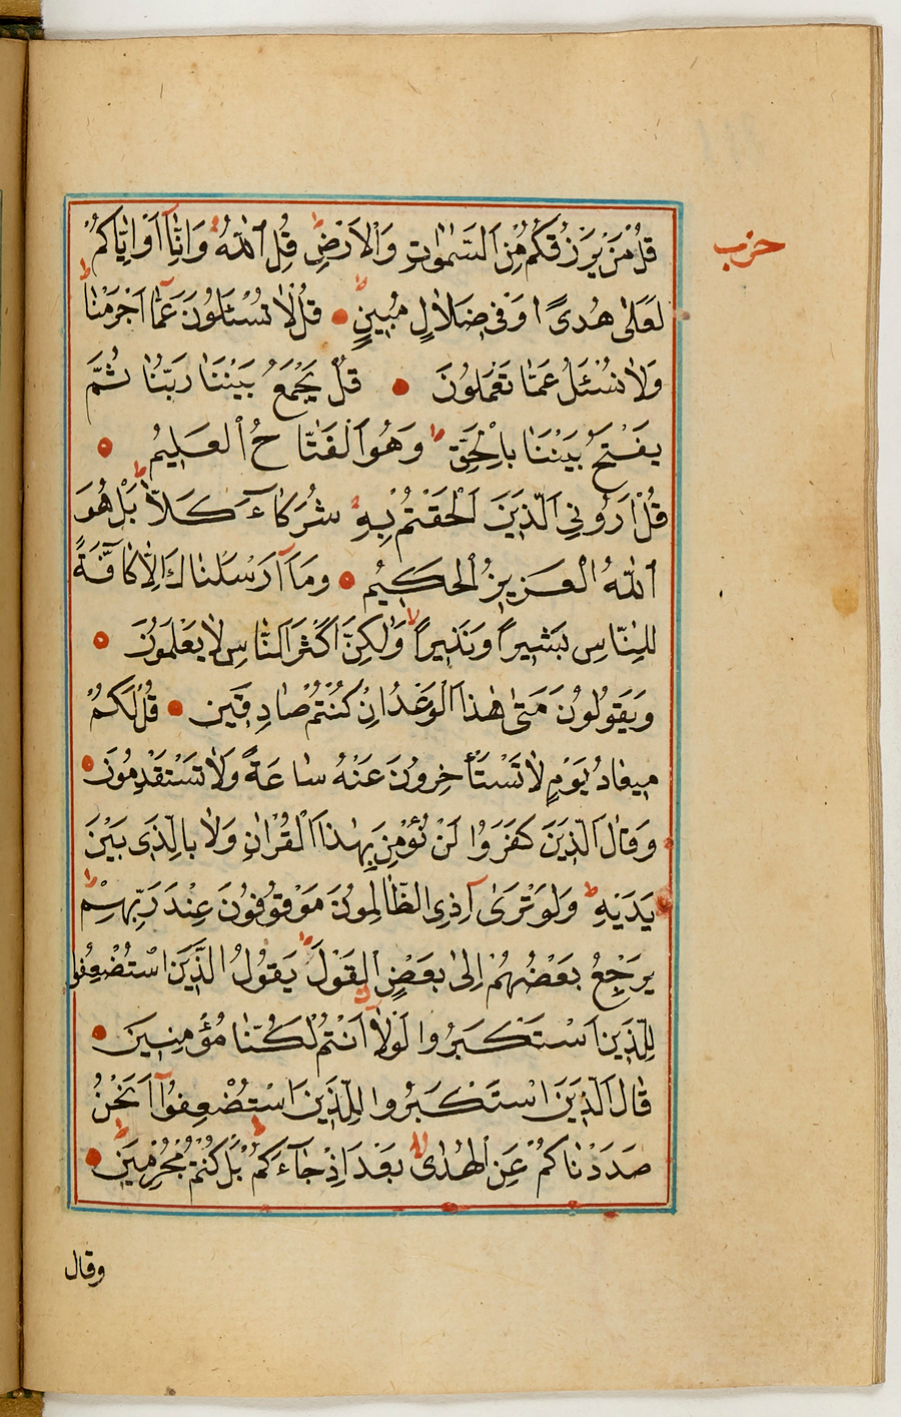 حزب
قُلْ مَنْ يَرْزُقُكُمْ مِنَ السَّمٰوَاتِ وَالْاَرْضِ ط قُلِ اللّٰهُ لا وَاِنَّٓا اَوْ اِيَّاكُمْ
لَعَلٰى هُدًى اَوْ فِى ضَلَالٍ مُبِينٍ قُلْ لَا تُسْئَلُونَ عَمَّٓا اَجْرَمْنَا
وَلَا نُسْئَلُ عَمَّا تَعْمَلُونَ قُلْ يَجْمَعُ بَيْنَنَا رَبُّنَا ثُمَّ
يَفْتَحُ بَيْنَنَا بِالْحَقِّ ط وَهُوَ الْفَتَّاحُ الْعَلِيمُ
قُلْ اَرُونِىَ الَّذِينَ اَلْحَقْتُمْ بِهِ شُرَكَآءَ كَلَّا ط بَلْ هُوَ
اللّٰهُ الْعَزِيزُ الْحَكِيمُ وَمَٓا اَرْسَلْنَاكَ اِلَّا كَٓافَّةً
لِلنَّاسِ بَشِيرًا وَنَذِيرًا وَلٰكِنَّ اَكْثَرَ النَّاسِ لَا يَعْلَمُونَ
وَيَقُولُونَ مَتٰى هٰذَا الْوَعْدُ اِنْ كُنْتُمْ صَادِقِينَ قُلْ لَكُمْ
مِيعَادُ يَوْمٍ لَا تَسْتَأْخِرُونَ عَنْهُ سَاعَةً وَلَا تَسْتَقْدِمُونَ
وَقَالَ الَّذِينَ كَفَرُوا لَنْ نُؤْمِنَ بِهٰذَا الْقُرْاٰنِ وَلَا بِالَّذِى بَيْنَ
يَدَيْهِ ط وَلَوْ تَرٰٓى اِذِ الظَّالِمُونَ مَوْقُوفُونَ عِنْدَ رَبِّهِمْ
يَرْجِعُ بَعْضُهُمْ اِلٰى بَعْضٍ الْقَوْلَ يَقُولُ الَّذِينَ اسْتُضْعِفُوا
لِلَّذِينَ اسْتَكْبَرُوا لَوْلَٓا اَنْتُمْ لَكُنَّا مُؤْمِنِينَ
قَالَ الَّذِينَ اسْتَكْبَرُوا لِلَّذِينَ اسْتُضْعِفُوٓا اَنَحْنُ
صَدَدْنَاكُمْ عَنِ الْهُدٰى بَعْدَ اِذْ جَآءَكُمْ بَلْ كُنْتُمْ مُجْرِمِينَ
وقال